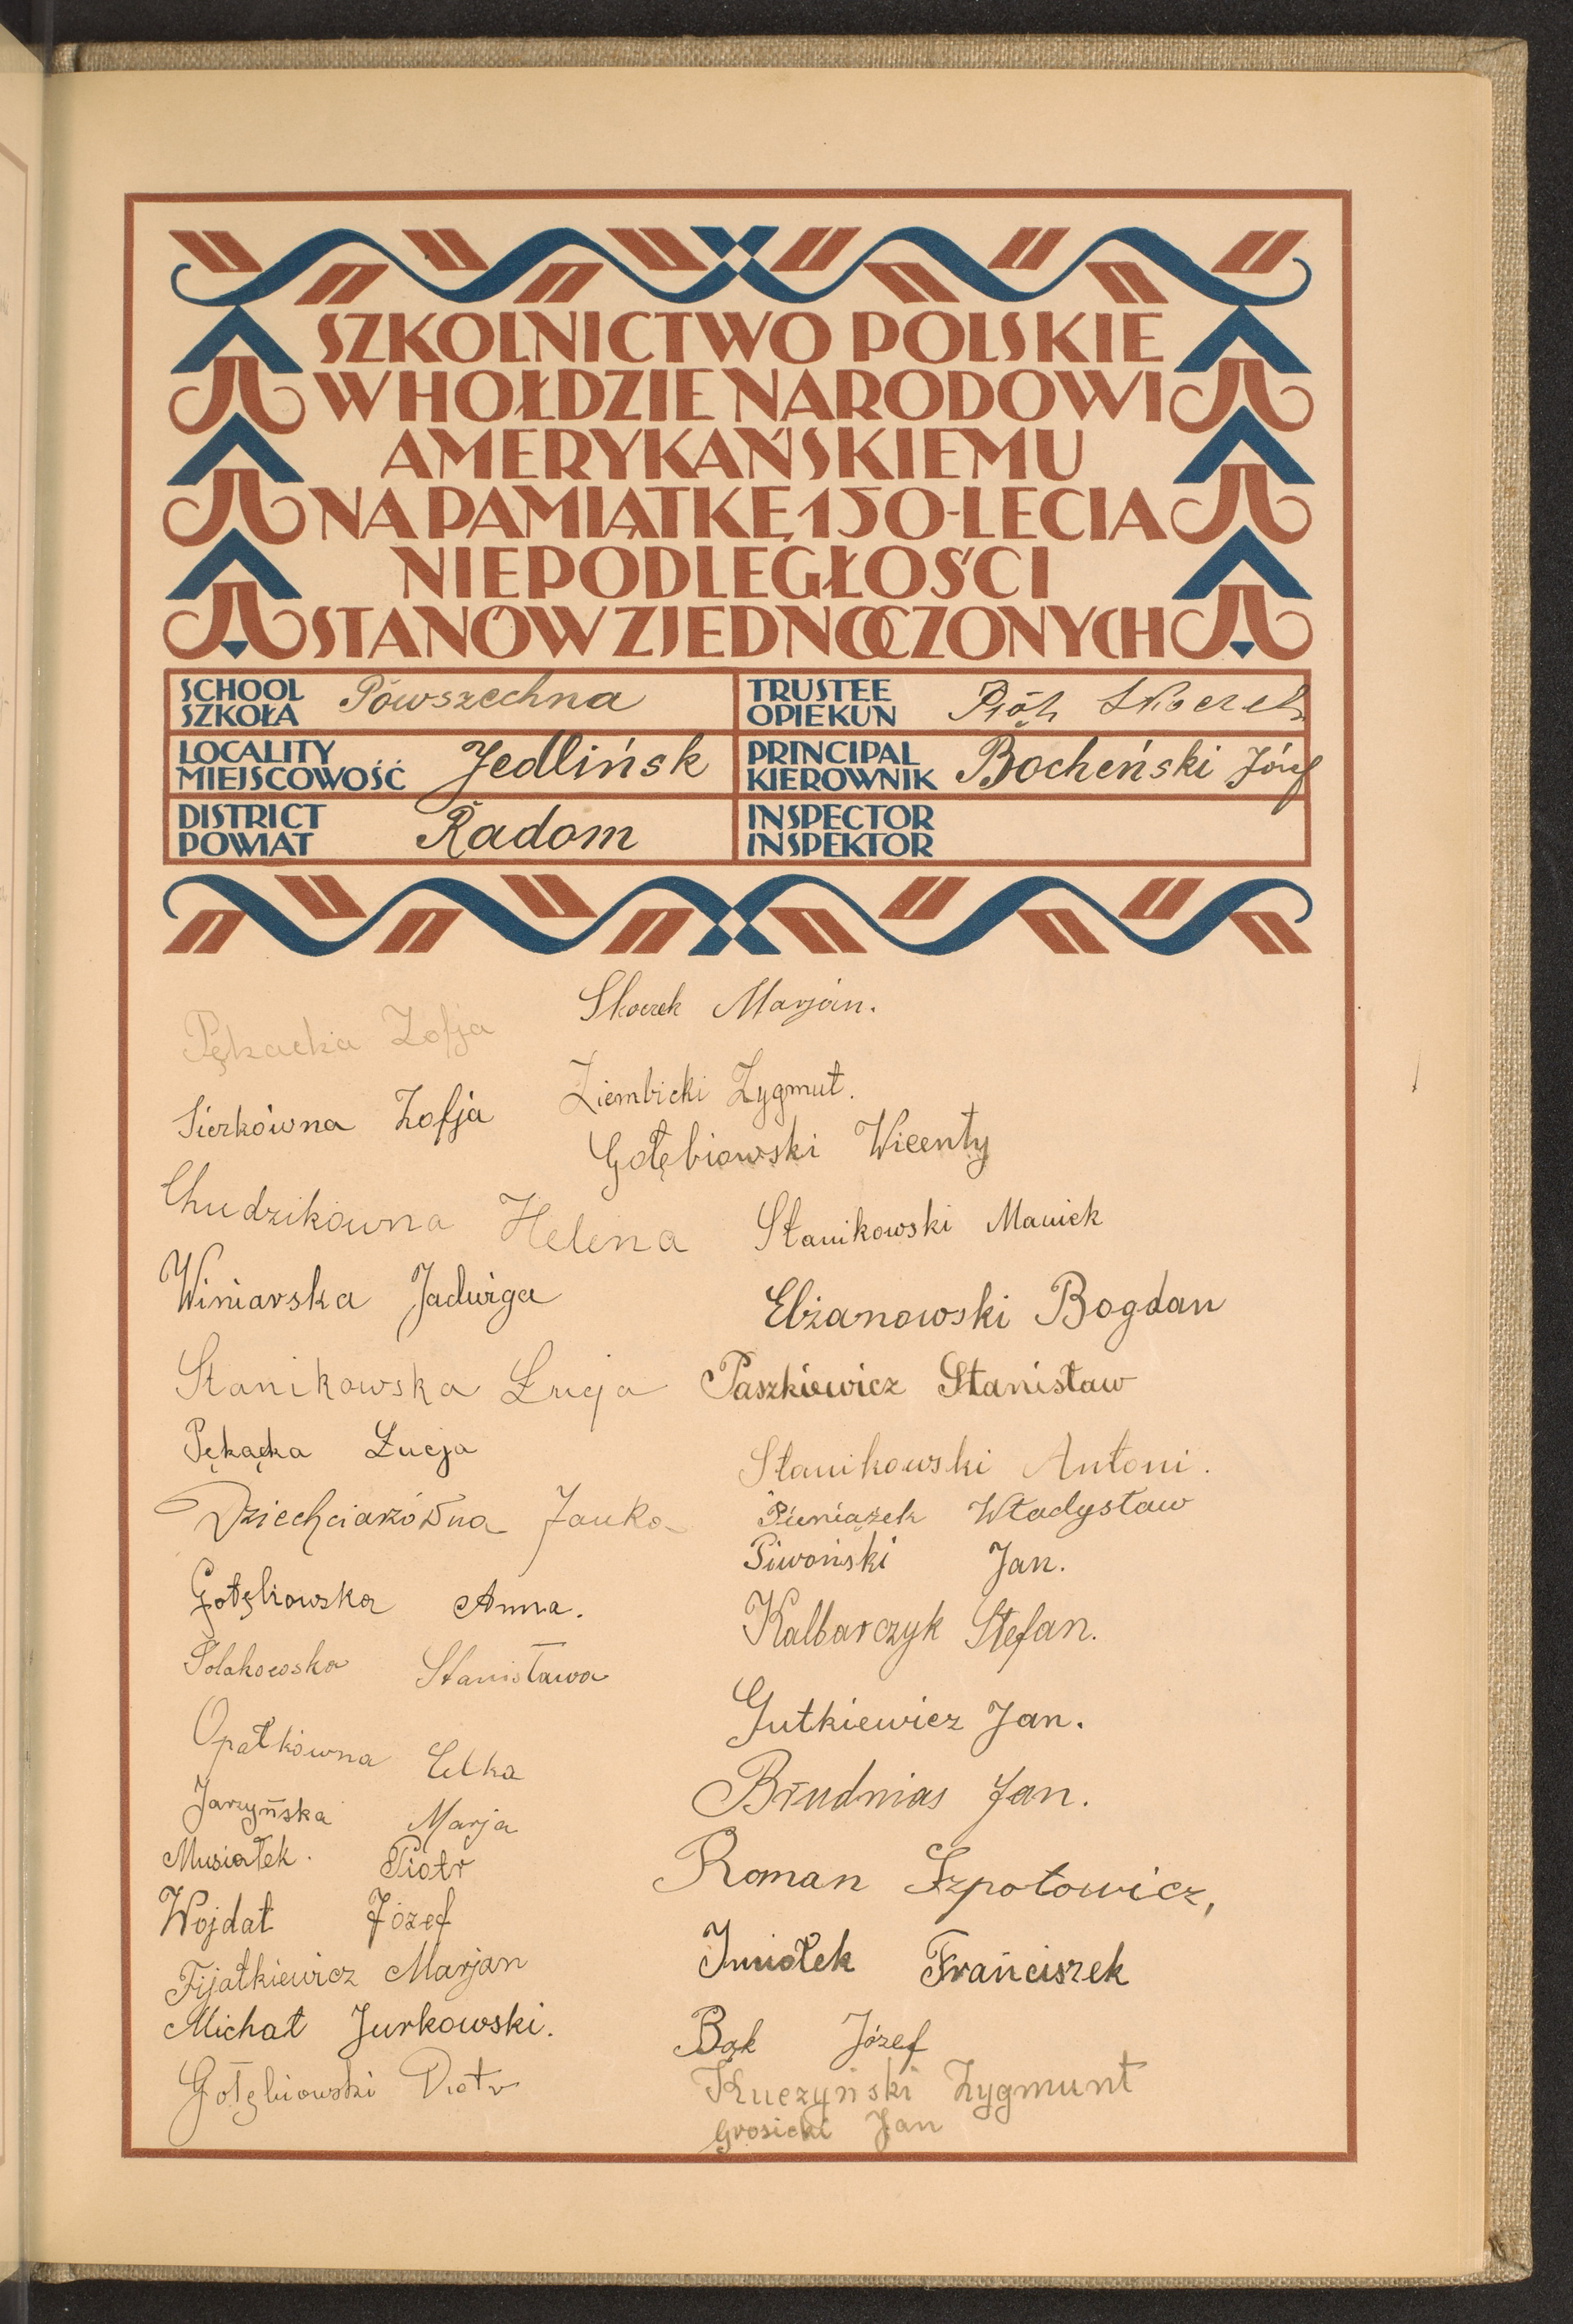 SZKOLNICTWO POLSKIE
W HOŁDZIE NARODOWI
AMERYKAŃSKIEMU
NA PAMIĄTKĘ 150-LECIA
NIEPODLEGŁOŚCI
STANÓW ZJEDNOCZONYCH
SCHOOL
SZKOŁA
Powszechna
TRUSTEE
OPIEKUN
Piotr Skoczek
LOCALITY
MIEJSCOWOŚĆ
Jedlińsk
PRINCIPAL
KIEROWNIK
Bocheński Józef
DISTRICT
POWIAT
Radom
INSPECTOR
INSPEKTOR
Pękacka Zofja
Sierkówna Zofja
Chudzikówna Helena
Winiarska Jadwiga
Stanikowska Łucja
Pękącka Łucja
Dziechciarówna Janka
Gołębiowska Anna.
Polakowska Stanisława
Opatkówna
Jarzyńska Marja
Musiałek. Piotr
Wojdat Józef
Fijałkiewicz Marjan
Michał Jurkowski.
Gołębiowski Piotr
Skoczek Marjan.
Ziembicki Zygmut.
Gołębiowski Wicenty
Stanikowski Maniek
Elżanowski Bogdan
Paszkiewicz Stanisław
Stanikowski Antoni.
Pieniążek Władysław
Piwoński Jan.
Kalbarczyk Stefan.
Gutkiewicz Jan.
Brudnias Jan.
Roman Szpotowicz,
Imiołek Frańciszek
Bąk Józef
Kuczyński Zygmunt
Grosicki Jan